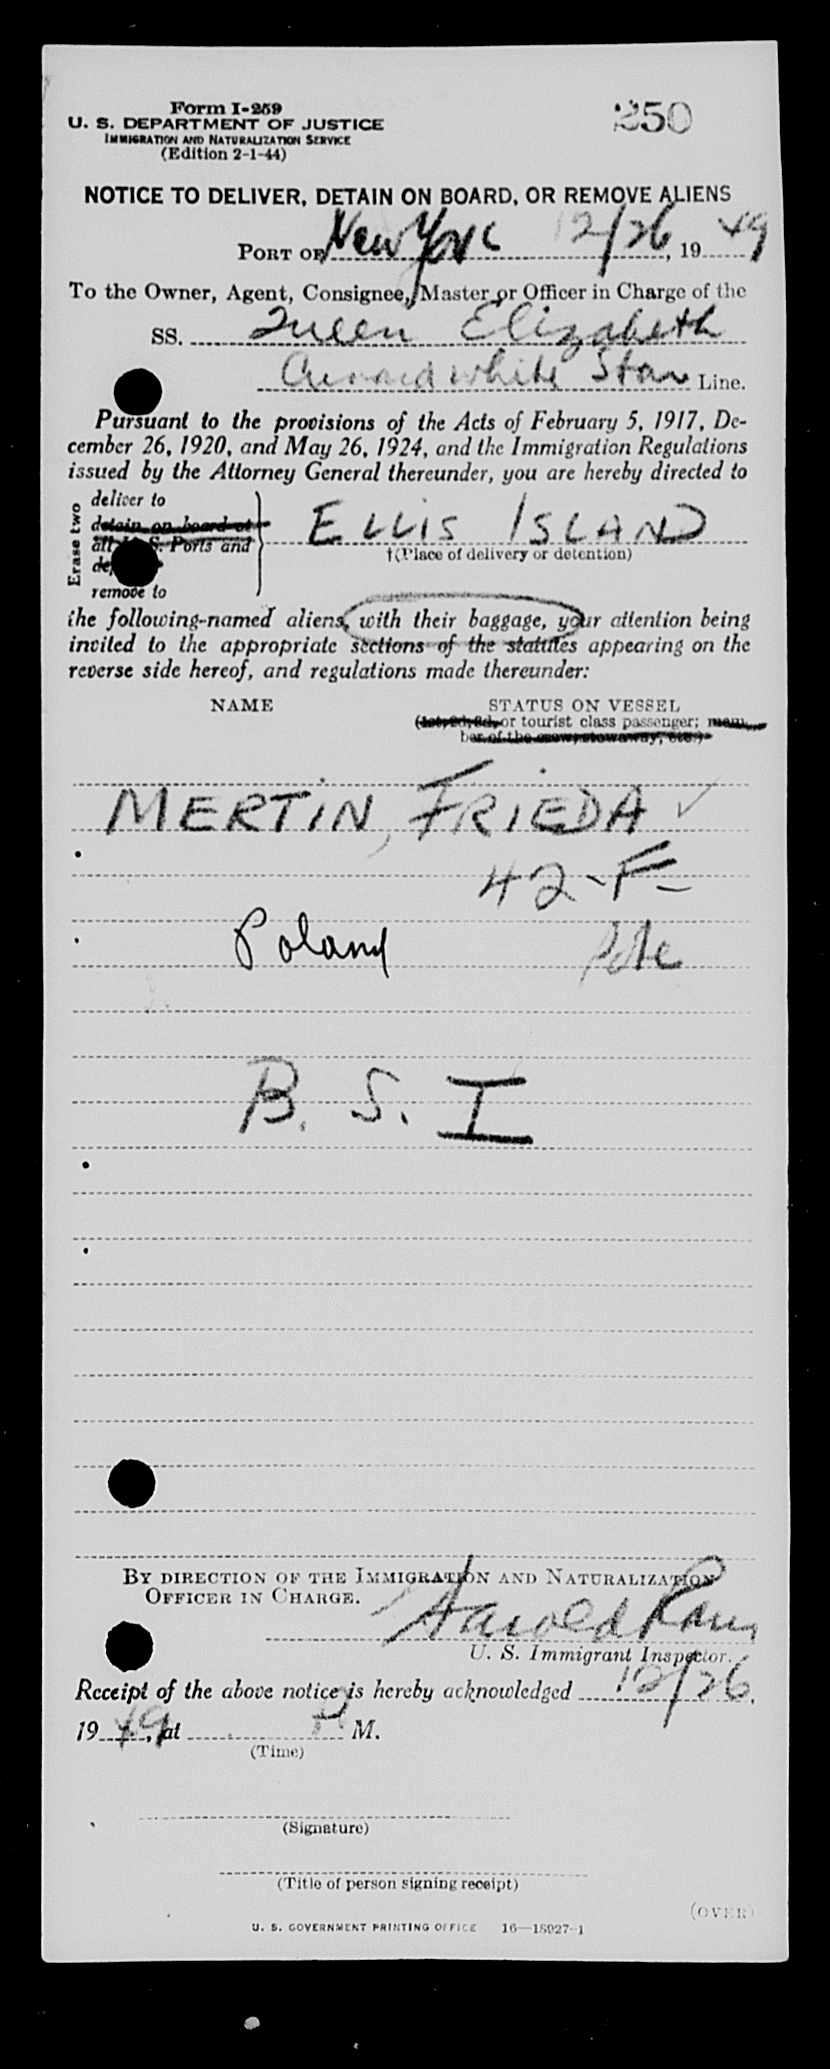 Form I-259
U. S. DEPARTMENT OF JUSTICE
IMMIGRATION AND NATURALIZATION SERVICE
(Edition 2-1-44)
250
NOTICE TO DELIVER, DETAIN ON BOARD, OR REMOVE ALIENS
PORT OF New York 12/26, 19 49
To the Owner, Agent, Consignee, Master or Officer in Charge of the
SS. Queen Elizabeth
Cunard White Star Line.
Pursuant to the provisions of the Acts of February 5, 1917, De-
cember 26, 1920, and May 26, 1924, and the Immigration Regulations
issued by the Attorney General thereunder, you are hereby directed to
Erase two
deliver to
detain on board at
all U. S. Ports and
remove to
ELLIS ISLAND
†(Place of delivery or detention)
the following-named aliens, with their baggage, your attention being
invited to the appropriate sections of the statutes appearing on the
reverse side hereof, and regulations made thereunder:
NAME STATUS ON VESSEL
(1st, 2d, 3d, or tourist class passenger; mem-
ber of the crew, stowaway, etc.)
MERTIN, FRIEDA ✓
42-F-
Poland Pole
B. S. I
BY DIRECTION OF THE IMMIGRATION AND NATURALIZATION
OFFICER IN CHARGE.
Harold
U. S. Immigrant Inspector.
Receipt of the above notice is hereby acknowledged 12/26,
19 49, at P M.
(Time)
(Signature)
(Title of person signing receipt)
(OVER)
U. S. GOVERNMENT PRINTING OFFICE 16—18927-1